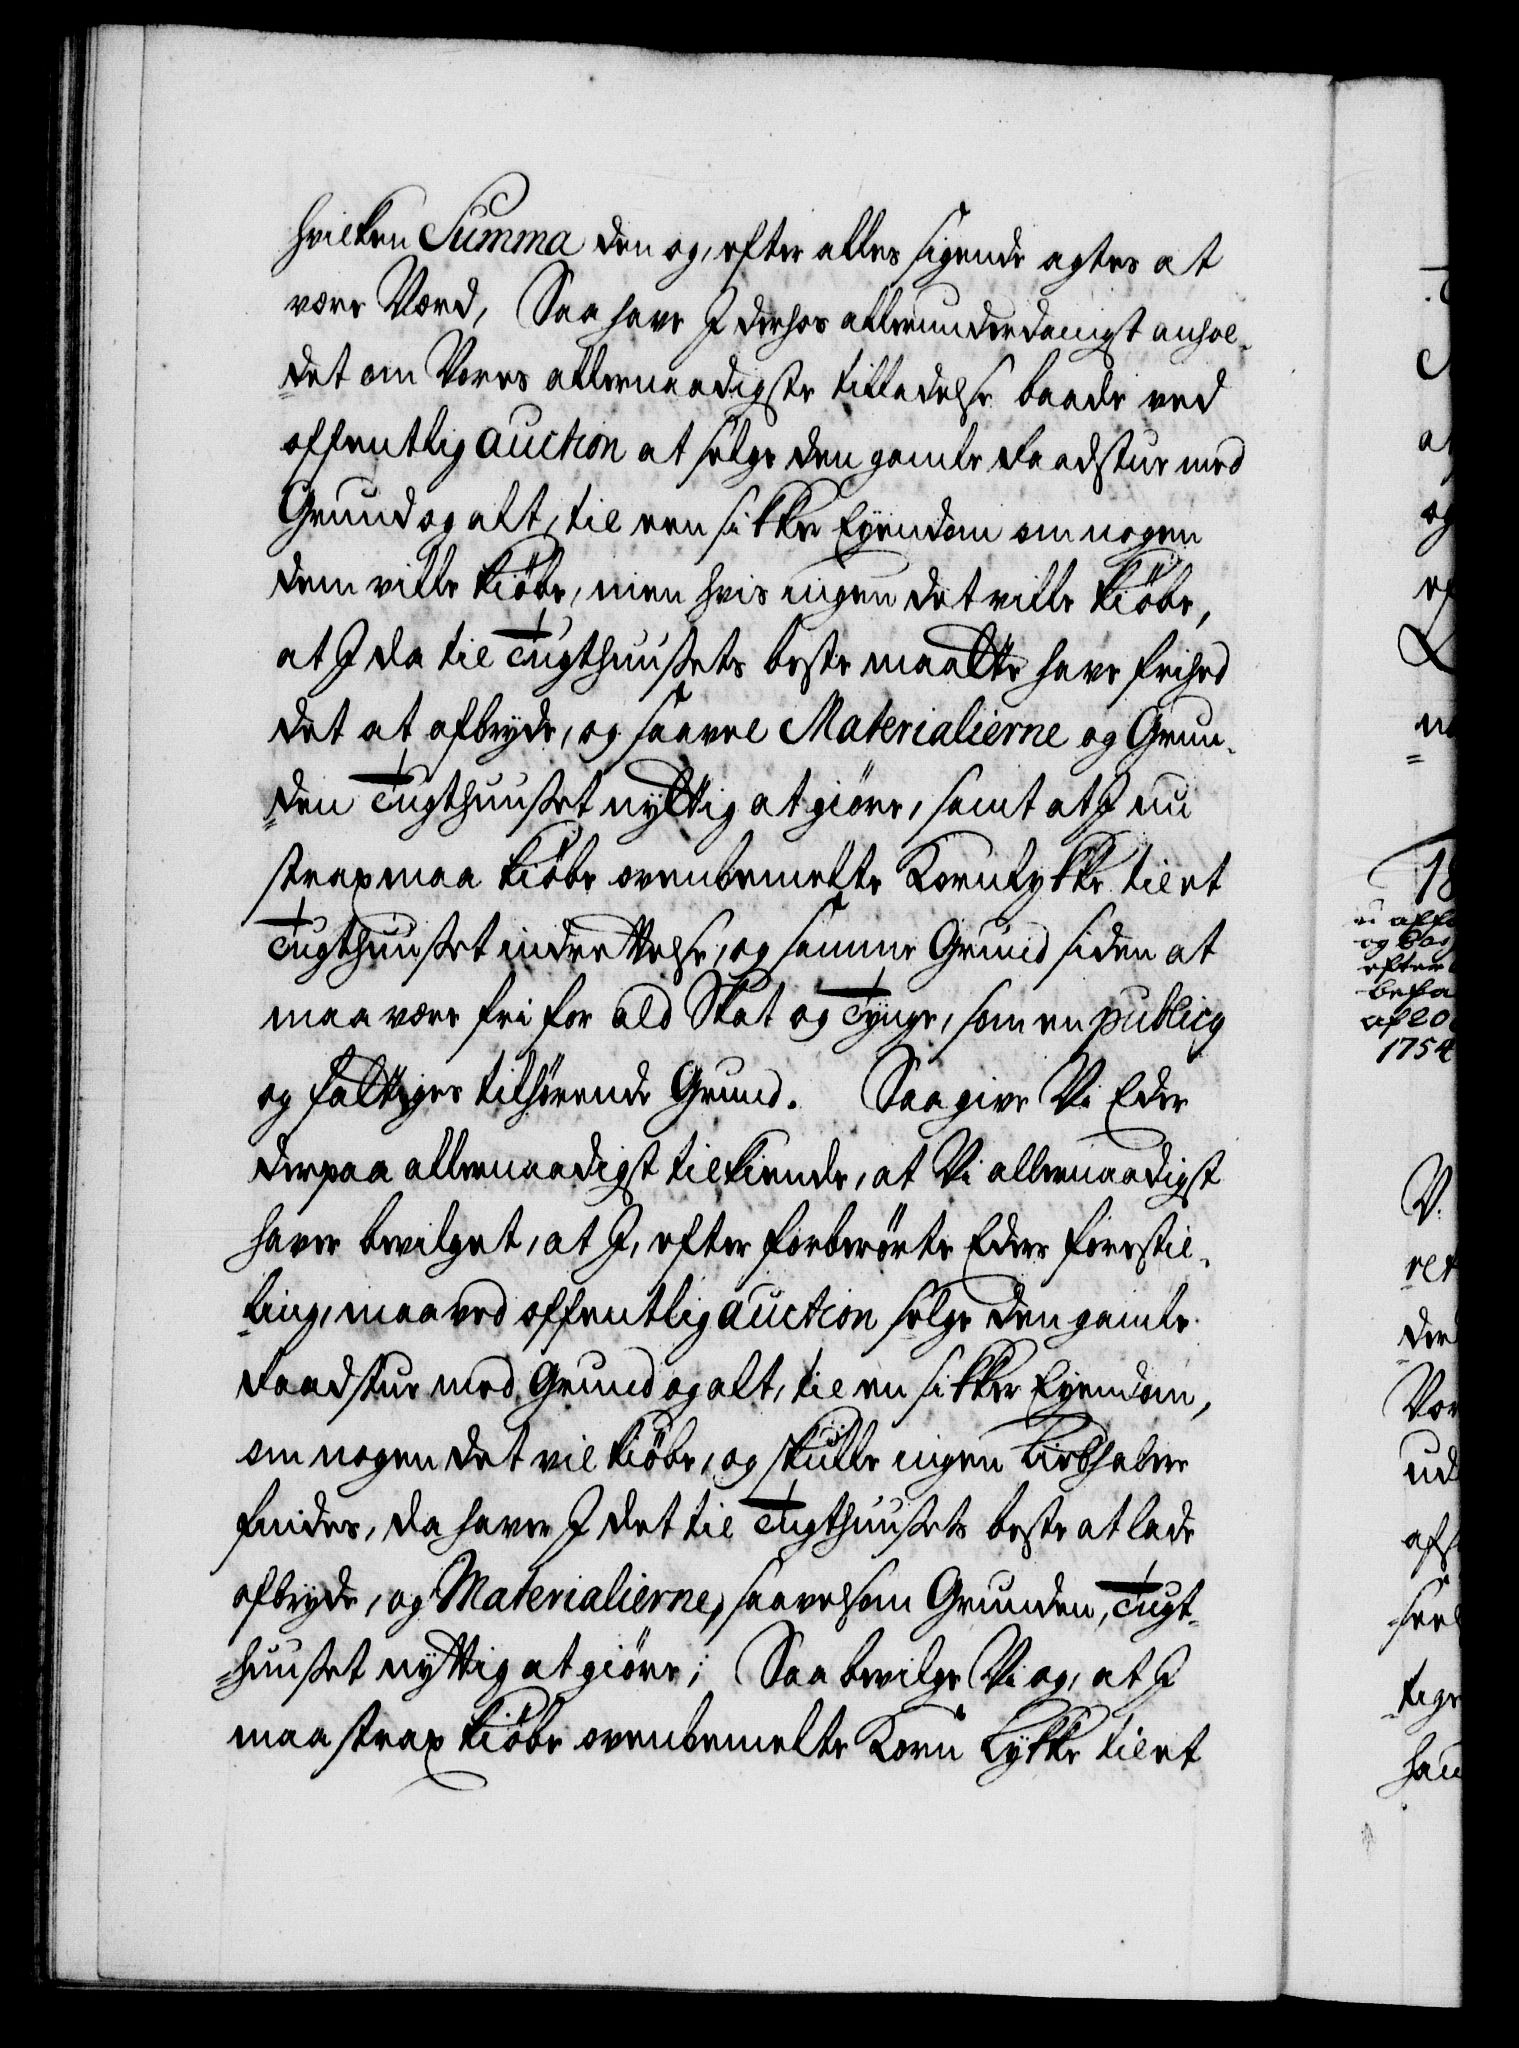 hvilken Summa den og, efter alles sigende agtes at
være Værd, Saa have I derhos allerunderdanigst anhol-
det om Vores allernaadigste tilladelse baade ved
offentlig auction at selge den gamle Raadstue med
Grund og alt, til een sikker Eyendom om nogen
dem ville kiöbe, men hvis ingen det ville kiöbe,
at I da til Tugthuusets beste maatte have frihed
det at afbryde, og saavel Materialierne og Grun-
den Tugthuuset nyttig at giöre, samt at I nu
strax maa kiöbe ovenbemelte Kornlykke til et
Tugthuuset indrettelse, og samme Grund siden at
maa være fri for ald Skat og Tynge, som en publicq
og fattiges tilhörende Grund. Saa give Vi Eder
derpaa allernaadigst tilkiende, at Vi allernaadigst
haver bevilget, at I, efter forberörte Eders forestil-
ling, maa ved offentlig auction selge den gamle
Raadstue med Grund og alt, til en sikker Eyendom,
om nogen det vil kiöbe, og skulle ingen Liebhabere
findes, da haver I det til Tugthuusets beste at lade
afbryde, og Materialierne, saavelsom Grunden, Tugt-
huuset nyttig at giöre; Saa bevilge Vi og, at I
maa strax kiöbe ovenbemelte Korn Lykke til et
1754